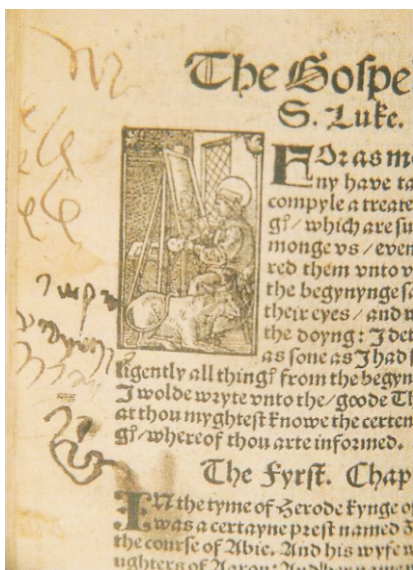 The Goſpe
S. Luke.
FOr as m
ny have ta
compyle a treate
gꝭ/ which are ſu
monge vs / even
red them vnto v
the begynynge ſa
their eyes / and w
the doyng: I det
as ſone as I had
ligently all thingꝭ from the begyn
I wolde wryte vnto the/goode Th
at thou myghteſt knowe the certen
gꝭ/whereof thou arte informed.
The Fyrſt. Chap
IN the tyme of Herode kynge of
was a certayne preſt named Z
the courſe of Abie. And his wyfe w
ughters of Aaron: And her name